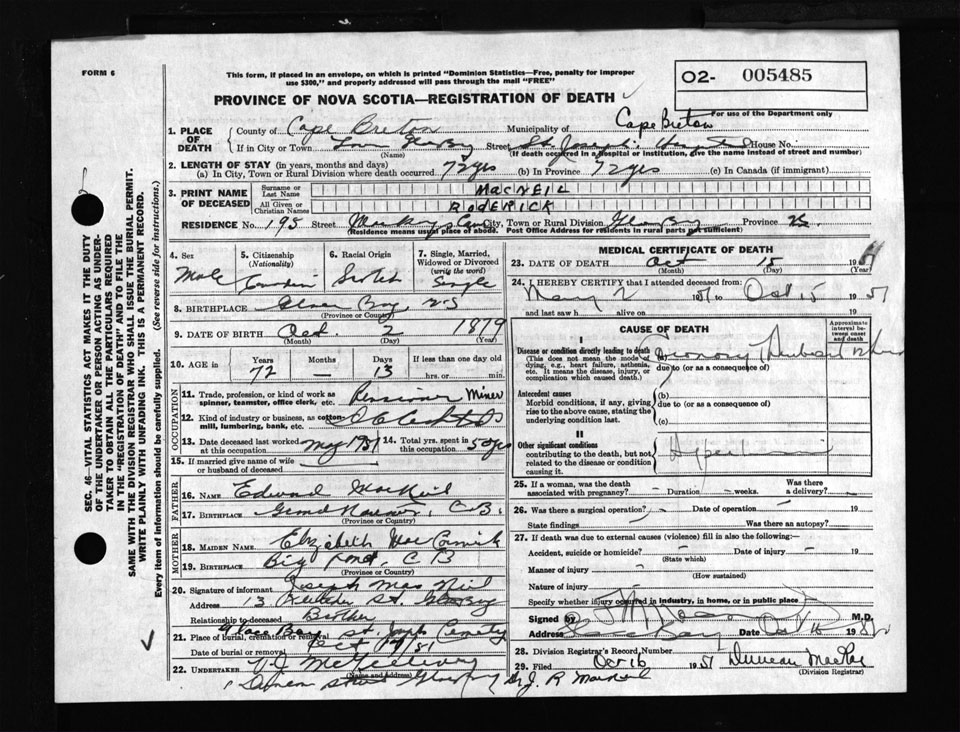 FORM 6
This form, if placed in an envelope, on which is printed "Dominion Statistics—Free, penalty for improper
use $300," and properly addressed will pass through the mail "FREE"
O2- 005485
For use of the Department only
PROVINCE OF NOVA SCOTIA—REGISTRATION OF DEATH
1. PLACE OF DEATH
County of Cape Breton Municipality of Cape Breton
If in City or Town Glace Bay Street St. Joseph's Hospital House No.
(Name) (If death occurred in a Hospital or Institution, give the name instead of street and number)
2. LENGTH OF STAY (in years, months and days)
(a) In City, Town or Rural Division where death occurred 72 yrs (b) In Province 72 yrs (c) In Canada (if immigrant)
3. PRINT NAME OF DECEASED
Surname or Last Name MACNEIL
All Given or Christian Names RODERICK
RESIDENCE No. 195 Street City, Town or Rural Division Glace Bay Province N.S.
(Residence means usual place of abode. Post Office Address for residents in rural parts not sufficient)
4. Sex
Male
5. Citizenship
(Nationality)
Canadian
6. Racial Origin
Scotch
7. Single, Married, Widowed or Divorced
(write the word)
Single
8. BIRTHPLACE Glace Bay N.S
(Province or Country)
9. DATE OF BIRTH Oct. 2 1879
(Month) (Day) (Year)
10. AGE in
Years Months Days
72 — 13
If less than one day old
hrs. or min.
OCCUPATION
11. Trade, profession, or kind of work as spinner, teamster, office clerk, etc. Pensioner Miner
12. Kind of industry or business, as cotton mill, lumbering, bank, etc.
13. Date deceased last worked at this occupation May 1951 14. Total yrs. spent in this occupation 50 yrs
15. If married give name of wife or husband of deceased
FATHER
16. NAME Edward MacNeil
17. BIRTHPLACE Grand Narrows, C.B.
(Province or Country)
MOTHER
18. MAIDEN NAME Elizabeth MacCormick
19. BIRTHPLACE Big Pond, C B
(Province or Country)
20. Signature of informant Joseph MacNeil
Address 13 St. Glace Bay
Relationship to deceased Brother
21. Place of burial, cremation or removal Glace Bay St. Josephs Cemetery
Date of burial or removal Oct 17/51
22. UNDERTAKER V.J. McGillivray
(Name and address)
Glace Bay
MEDICAL CERTIFICATE OF DEATH
23. DATE OF DEATH Oct 15 1951
(Month) (Day) (Year)
24. I HEREBY CERTIFY that I attended deceased from:
May 2 1951 to Oct 15 1951
and last saw h alive on 19
CAUSE OF DEATH
Approximate interval between onset and death
I
Disease or condition directly leading to death
(This does not mean the mode of dying, e.g., heart failure, asthenia, etc. It means the disease, injury, or complication which caused death.)
Coronary Thrombosis
due to (or as a consequence of)
Antecedent causes
Morbid conditions, if any, giving rise to the above cause, stating the underlying condition last.
(b)
due to (or as a consequence of)
(c)
II
Other significant conditions
contributing to the death, but not related to the disease or condition causing it.
25. If a woman, was the death associated with pregnancy? – Duration – weeks. Was there a delivery? –
26. Was there a surgical operation? – Date of operation – 19
State findings Was there an autopsy?
27. If death was due to external causes (violence) fill in also the following:—
Accident, suicide or homicide? – Date of injury – 19
(State which)
Manner of injury –
(How sustained)
Nature of injury –
Specify whether injury occurred in industry, in home, or in public place
Signed by M.D.
Address Glace Bay Date Oct 16 1951
28. Division Registrar's Record Number
29. Filed Oct 16 1951 Duncan MacRae
(Division Registrar)
Dr J. R. MacNeil
SEC. 46- VITAL STATISTICS ACT MAKES IT THE DUTY
OF THE UNDERTAKER OR PERSON ACTING AS UNDER-
TAKER TO OBTAIN ALL THE PARTICULARS REQUIRED
IN THE "REGISTRATION OF DEATH" AND TO FILE THE
SAME WITH THE DIVISION REGISTRAR WHO SHALL ISSUE THE BURIAL PERMIT.
WRITE PLAINLY WITH UNFADING INK. THIS IS A PERMANENT RECORD.
Every item of information should be carefully supplied. (See reverse side for instructions.)